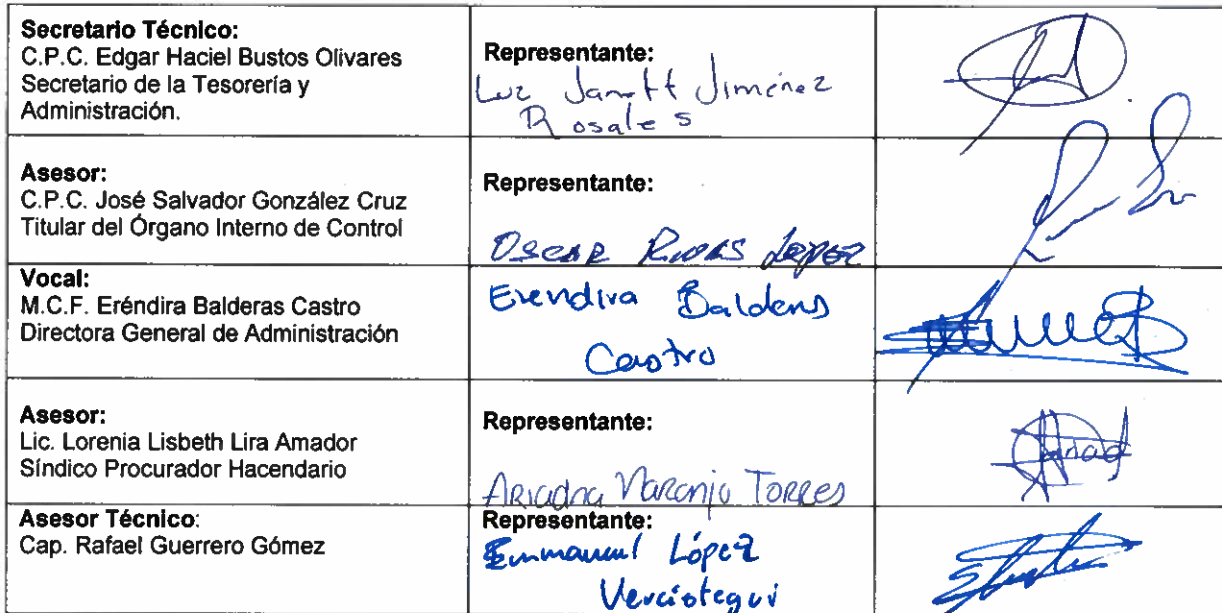 Secretario Técnico:
C.P.C. Edgar Haciel Bustos Olivares
Secretario de la Tesorería y
Administración.
Representante:
Luz Janett Jiménez
Rosales
Asesor:
C.P.C. José Salvador González Cruz
Titular del Órgano Interno de Control
Representante:
OSCAR RIVAS LOPEZ
Vocal:
M.C.F. Eréndira Balderas Castro
Directora General de Administración
Erendira Balderas
Castro
Asesor:
Lic. Lorenia Lisbeth Lira Amador
Síndico Procurador Hacendario
Representante:
Ariadna Naranjo Torres
Asesor Técnico:
Cap. Rafael Guerrero Gómez
Representante:
Emmanuel López